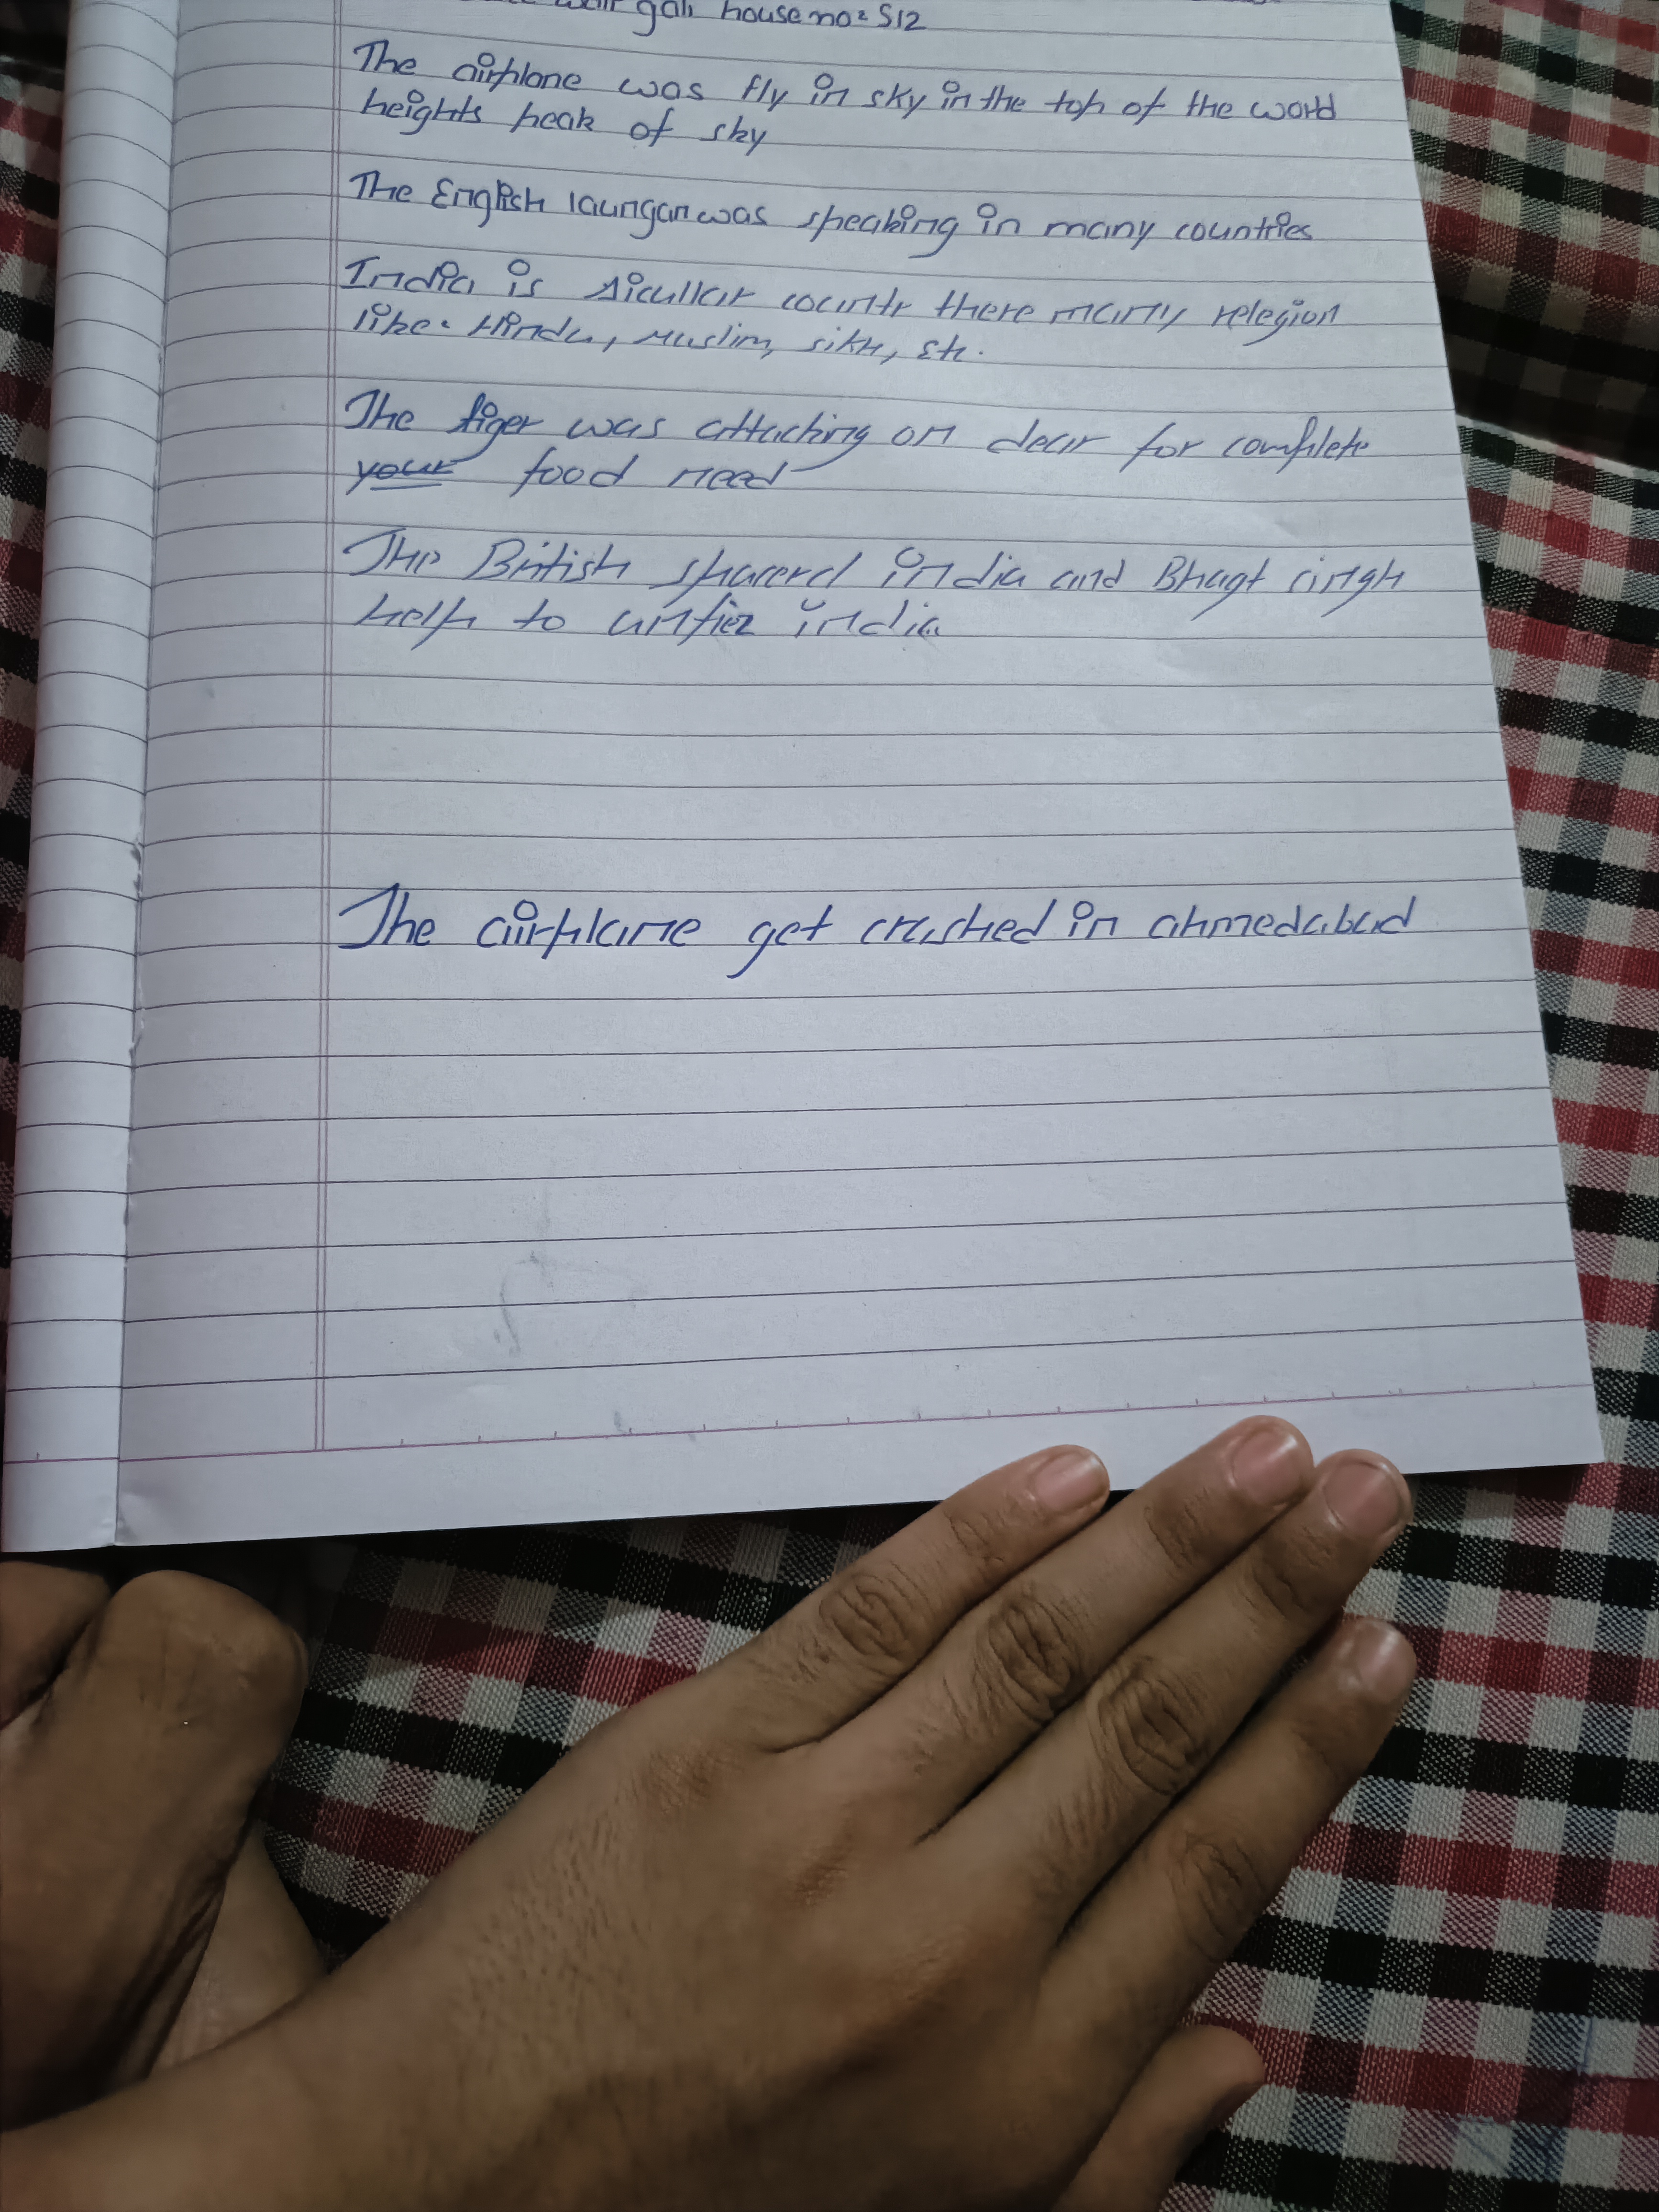 gali house no = S12
The airplane was fly in sky in the top of the world
heights peak of sky
The English laungan was speaking in many countries
India is sicullar countr there many relegion
like. Hindu, Muslim, sikh, etc.
The tiger was attacking on dear for complete
your food need
The British sharerd india and Bhagt singh
help to unfiez india
The airplane get crashed in ahmedabad